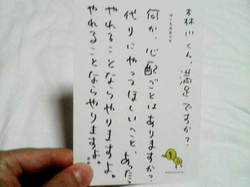 森川くん、満足ですか?
何か、心配ごとはありますか?
代りにやってほしいこと、あった
やれることならやりますよ。
やれることならやりますよ。